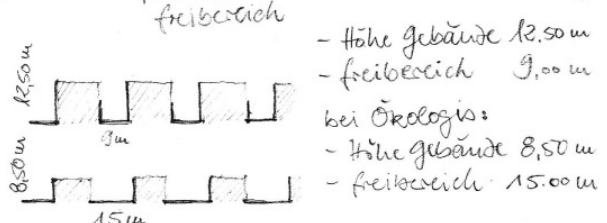 freibereich
12.50 m
9m
8,50 m
15 m
- Höhe Gebäude 12.50 m
- freibereich 9,00 m
bei Ökologis:
- Höhe Gebäude 8,50 m
- freibereich 15.00 m